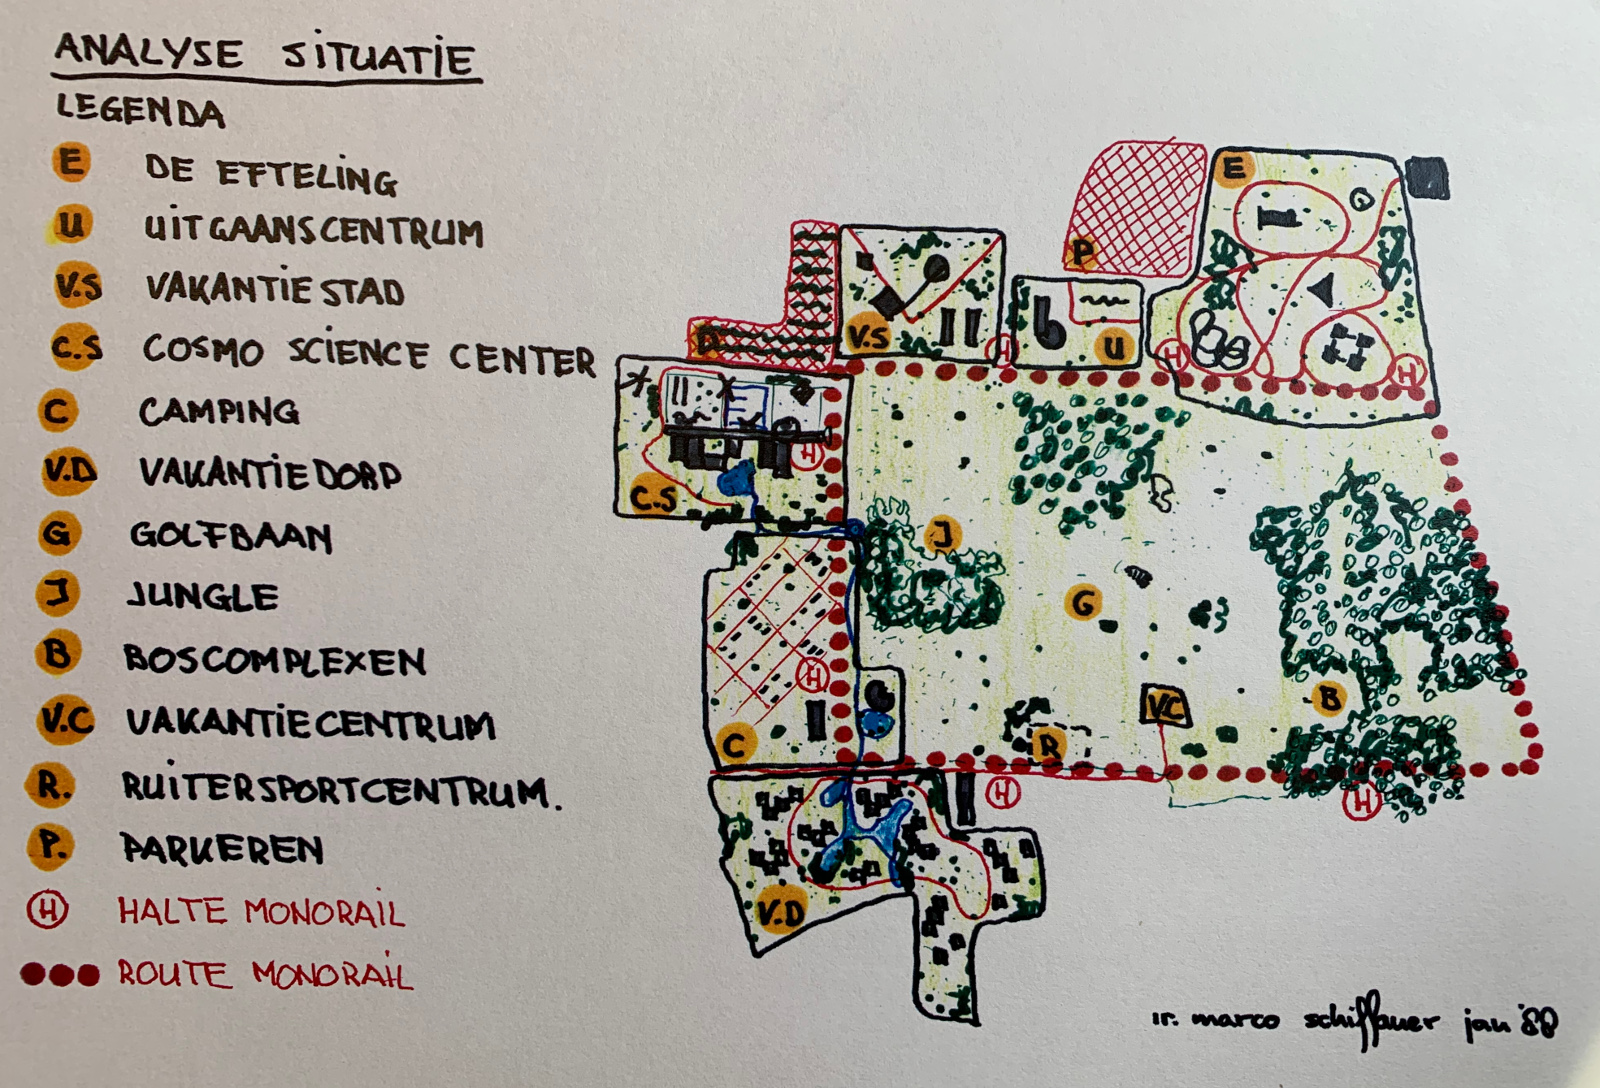 ANALYSE SITUATIE
LEGENDA
E DE EFTELING
U UITGAANSCENTRUM
V.S VAKANTIESTAD
C.S COSMO SCIENCE CENTER
C CAMPING
V.D VAKANTIEDORP
G GOLFBAAN
J JUNGLE
B BOSCOMPLEXEN
V.C VAKANTIECENTRUM
R. RUITERSPORTCENTRUM.
P. PARKEREN
H HALTE MONORAIL
ROUTE MONORAIL
E
P
P
V.S
U
H
H
H
H
C.S
J
G
H
V.C
B
C
R
H
H
V.D
ir. marco schiffauer jan '88